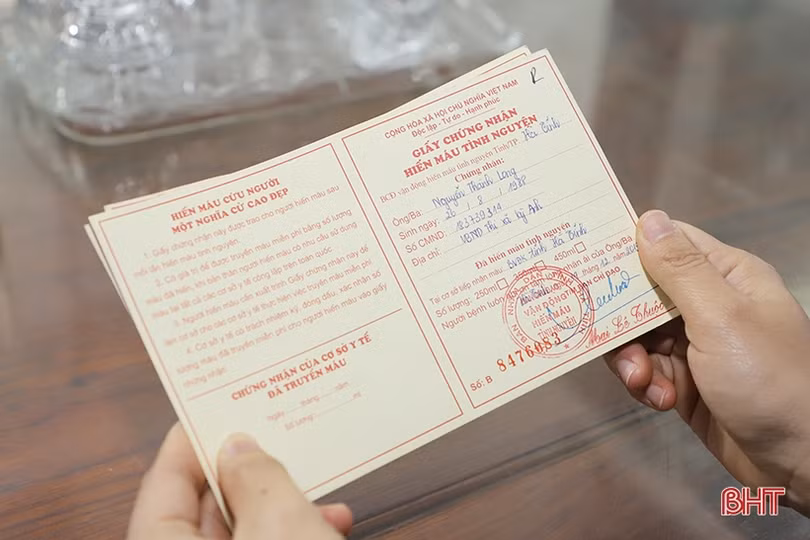 HIẾN MÁU CỨU NGƯỜI
MỘT NGHĨA CỬ CAO ĐẸP
1. Giấy chứng nhận này được trao cho người hiến máu sau
mỗi lần hiến máu tình nguyện.
2. Có giá trị để được truyền máu miễn phí bằng số lượng
máu đã hiến, khi bản thân người hiến máu có nhu cầu sử dụng
máu tại tất cả các cơ sở y tế công lập trên toàn quốc.
3. Người hiến máu cần xuất trình Giấy chứng nhận này để
làm cơ sở cho các cơ sở y tế thực hiện việc truyền máu miễn phí.
4. Cơ sở y tế có trách nhiệm ký, đóng dấu, xác nhận số
lượng máu đã truyền miễn phí cho người hiến máu vào giấy
chứng nhận.
CHỨNG NHẬN CỦA CƠ SỞ Y TẾ
ĐÃ TRUYỀN MÁU
Ngày ...... tháng ...... năm
Số lượng: ............ ml
R
CỘNG HÒA XÃ HỘI CHỦ NGHĨA VIỆT NAM
Độc lập - Tự do - Hạnh phúc
GIẤY CHỨNG NHẬN
HIẾN MÁU TÌNH NGUYỆN
BCĐ vận động hiến máu tình nguyện Tỉnh/TP. Hà Tĩnh
Chứng nhận:
Ông/Bà: Nguyễn Thanh Long
Sinh ngày: 26 / 8 / 1988
Số CMND: 183739314
Địa chỉ: UBND Thị xã Kỳ Anh
Đã hiến máu tình nguyện
Tại cơ sở tiếp nhận máu: BVĐK Tỉnh Hà Tĩnh
Số lượng: 250ml 350ml 450ml
Người bệnh luôn
ân của Ông/Bà
VẬN ĐỘNG
HIẾN MÁU
Mai Lê Thuộc
Số: B 8476083
BHT